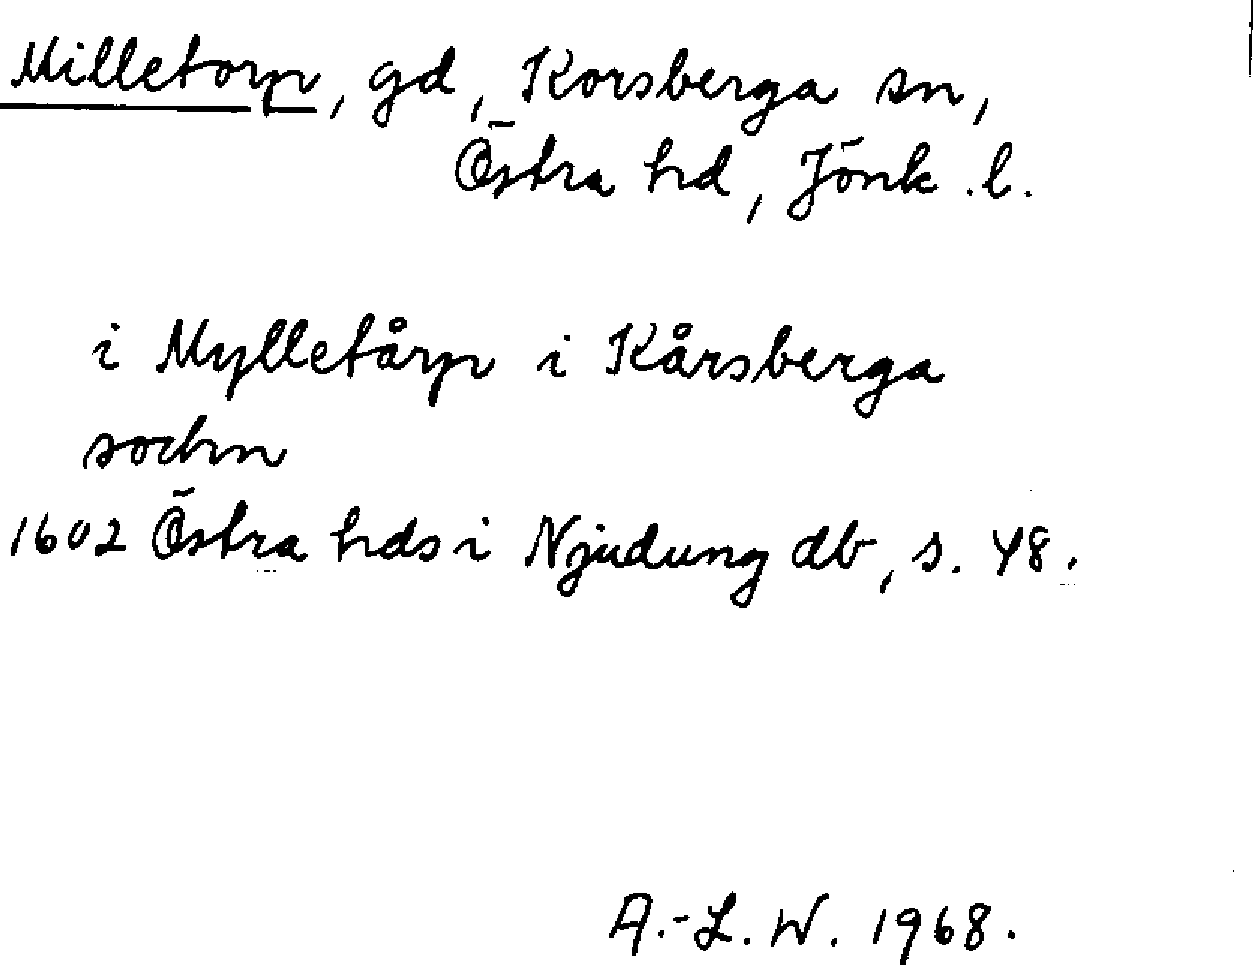 Milletorp, gd, Korsberga sn,
Östra hd, Jönk. l.
i Mylletårp i Kårsberga
sochn
1602 Östra hds i Njudung db, s. 48.
A.-L. W. 1968.